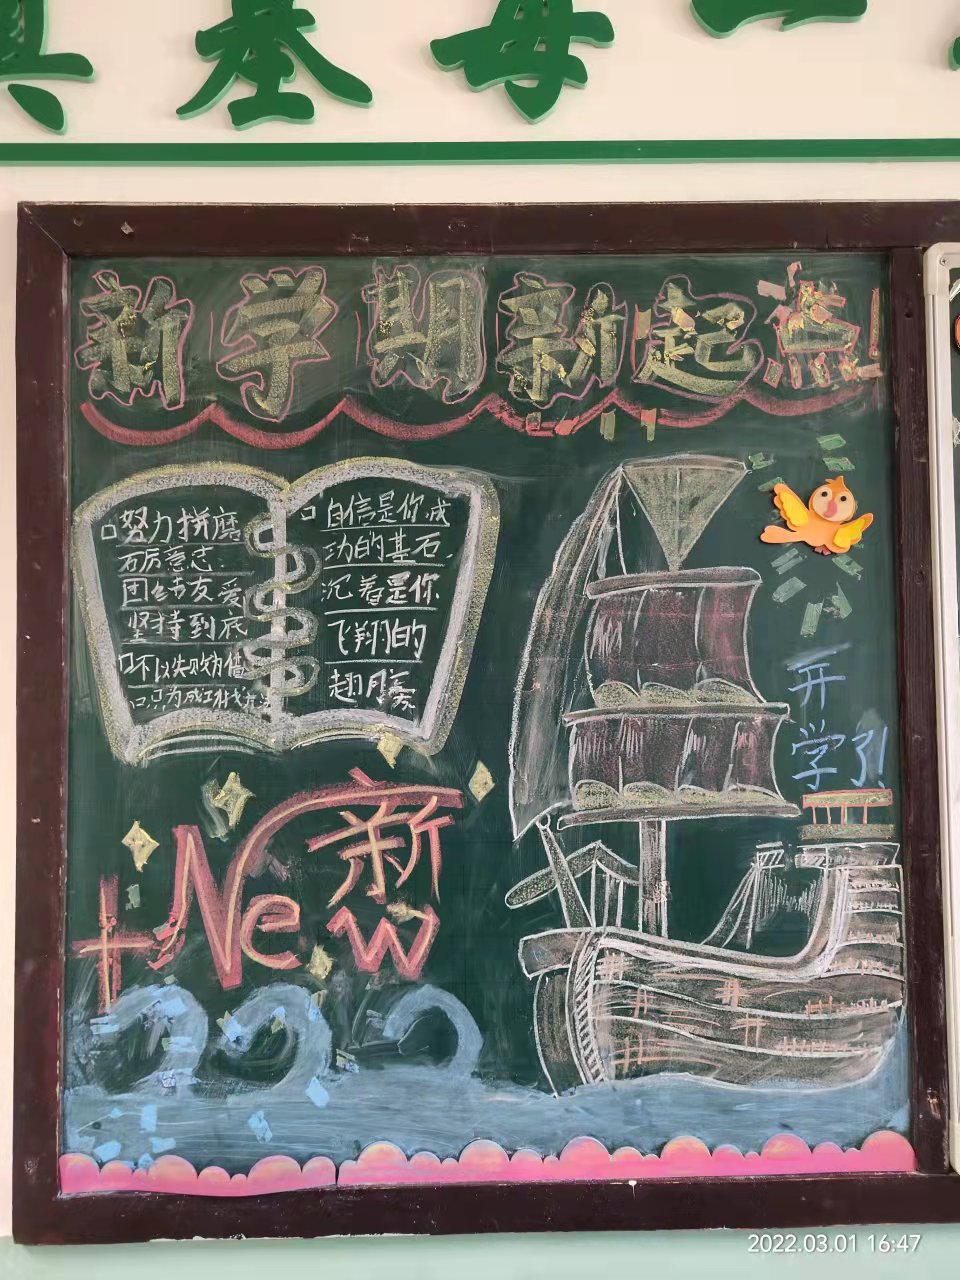 真基每一
新学期新起点!
努力拼磨
石厉意志.
团结友爱
坚持到底
不以失败为借
口只为成功找方法
自信是你成
功的基石,
沉着是你
飞翔的
翅膀
开
学了!
新
New